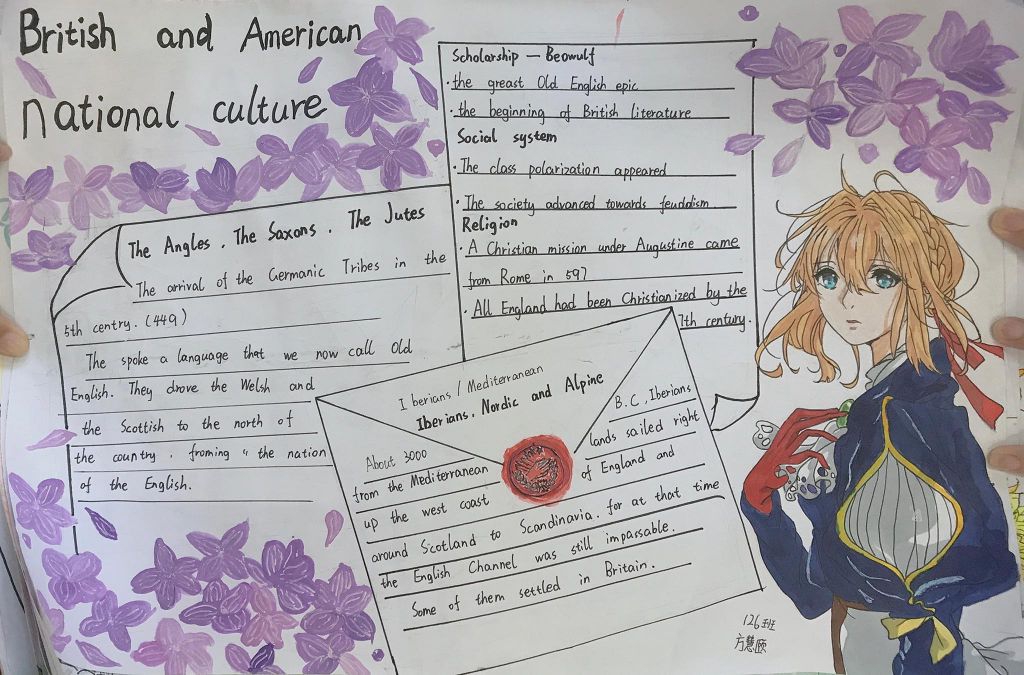 British and American
national culture
The Angles . The Saxons . The Jutes
The arrival of the Germanic Tribes in the
5th centry. (449)
The spoke a language that we now call Old
English. They drove the Welsh and
the Scottish to the north of
the country , froming " the nation
of the English.
Scholarship — Beowulf
· the greast Old English epic
· the beginning of British literature
Social system
· The class polarization appeared
· The society advanced towards feuddism.
Religion
· A Christian mission under Augustine came
from Rome in 597
· All England had been Christianized by the
7th century.
Iberians / Mediterranean
Iberians, Nordic and Alpine
About 3000 B.C, Iberians
from the Mediterranean lands sailed right
up the west coast of England and
around Scotland to Scandinavia. for at that time
the English Channel was still impassable.
Some of them settled in Britain.
126班
方慧颐